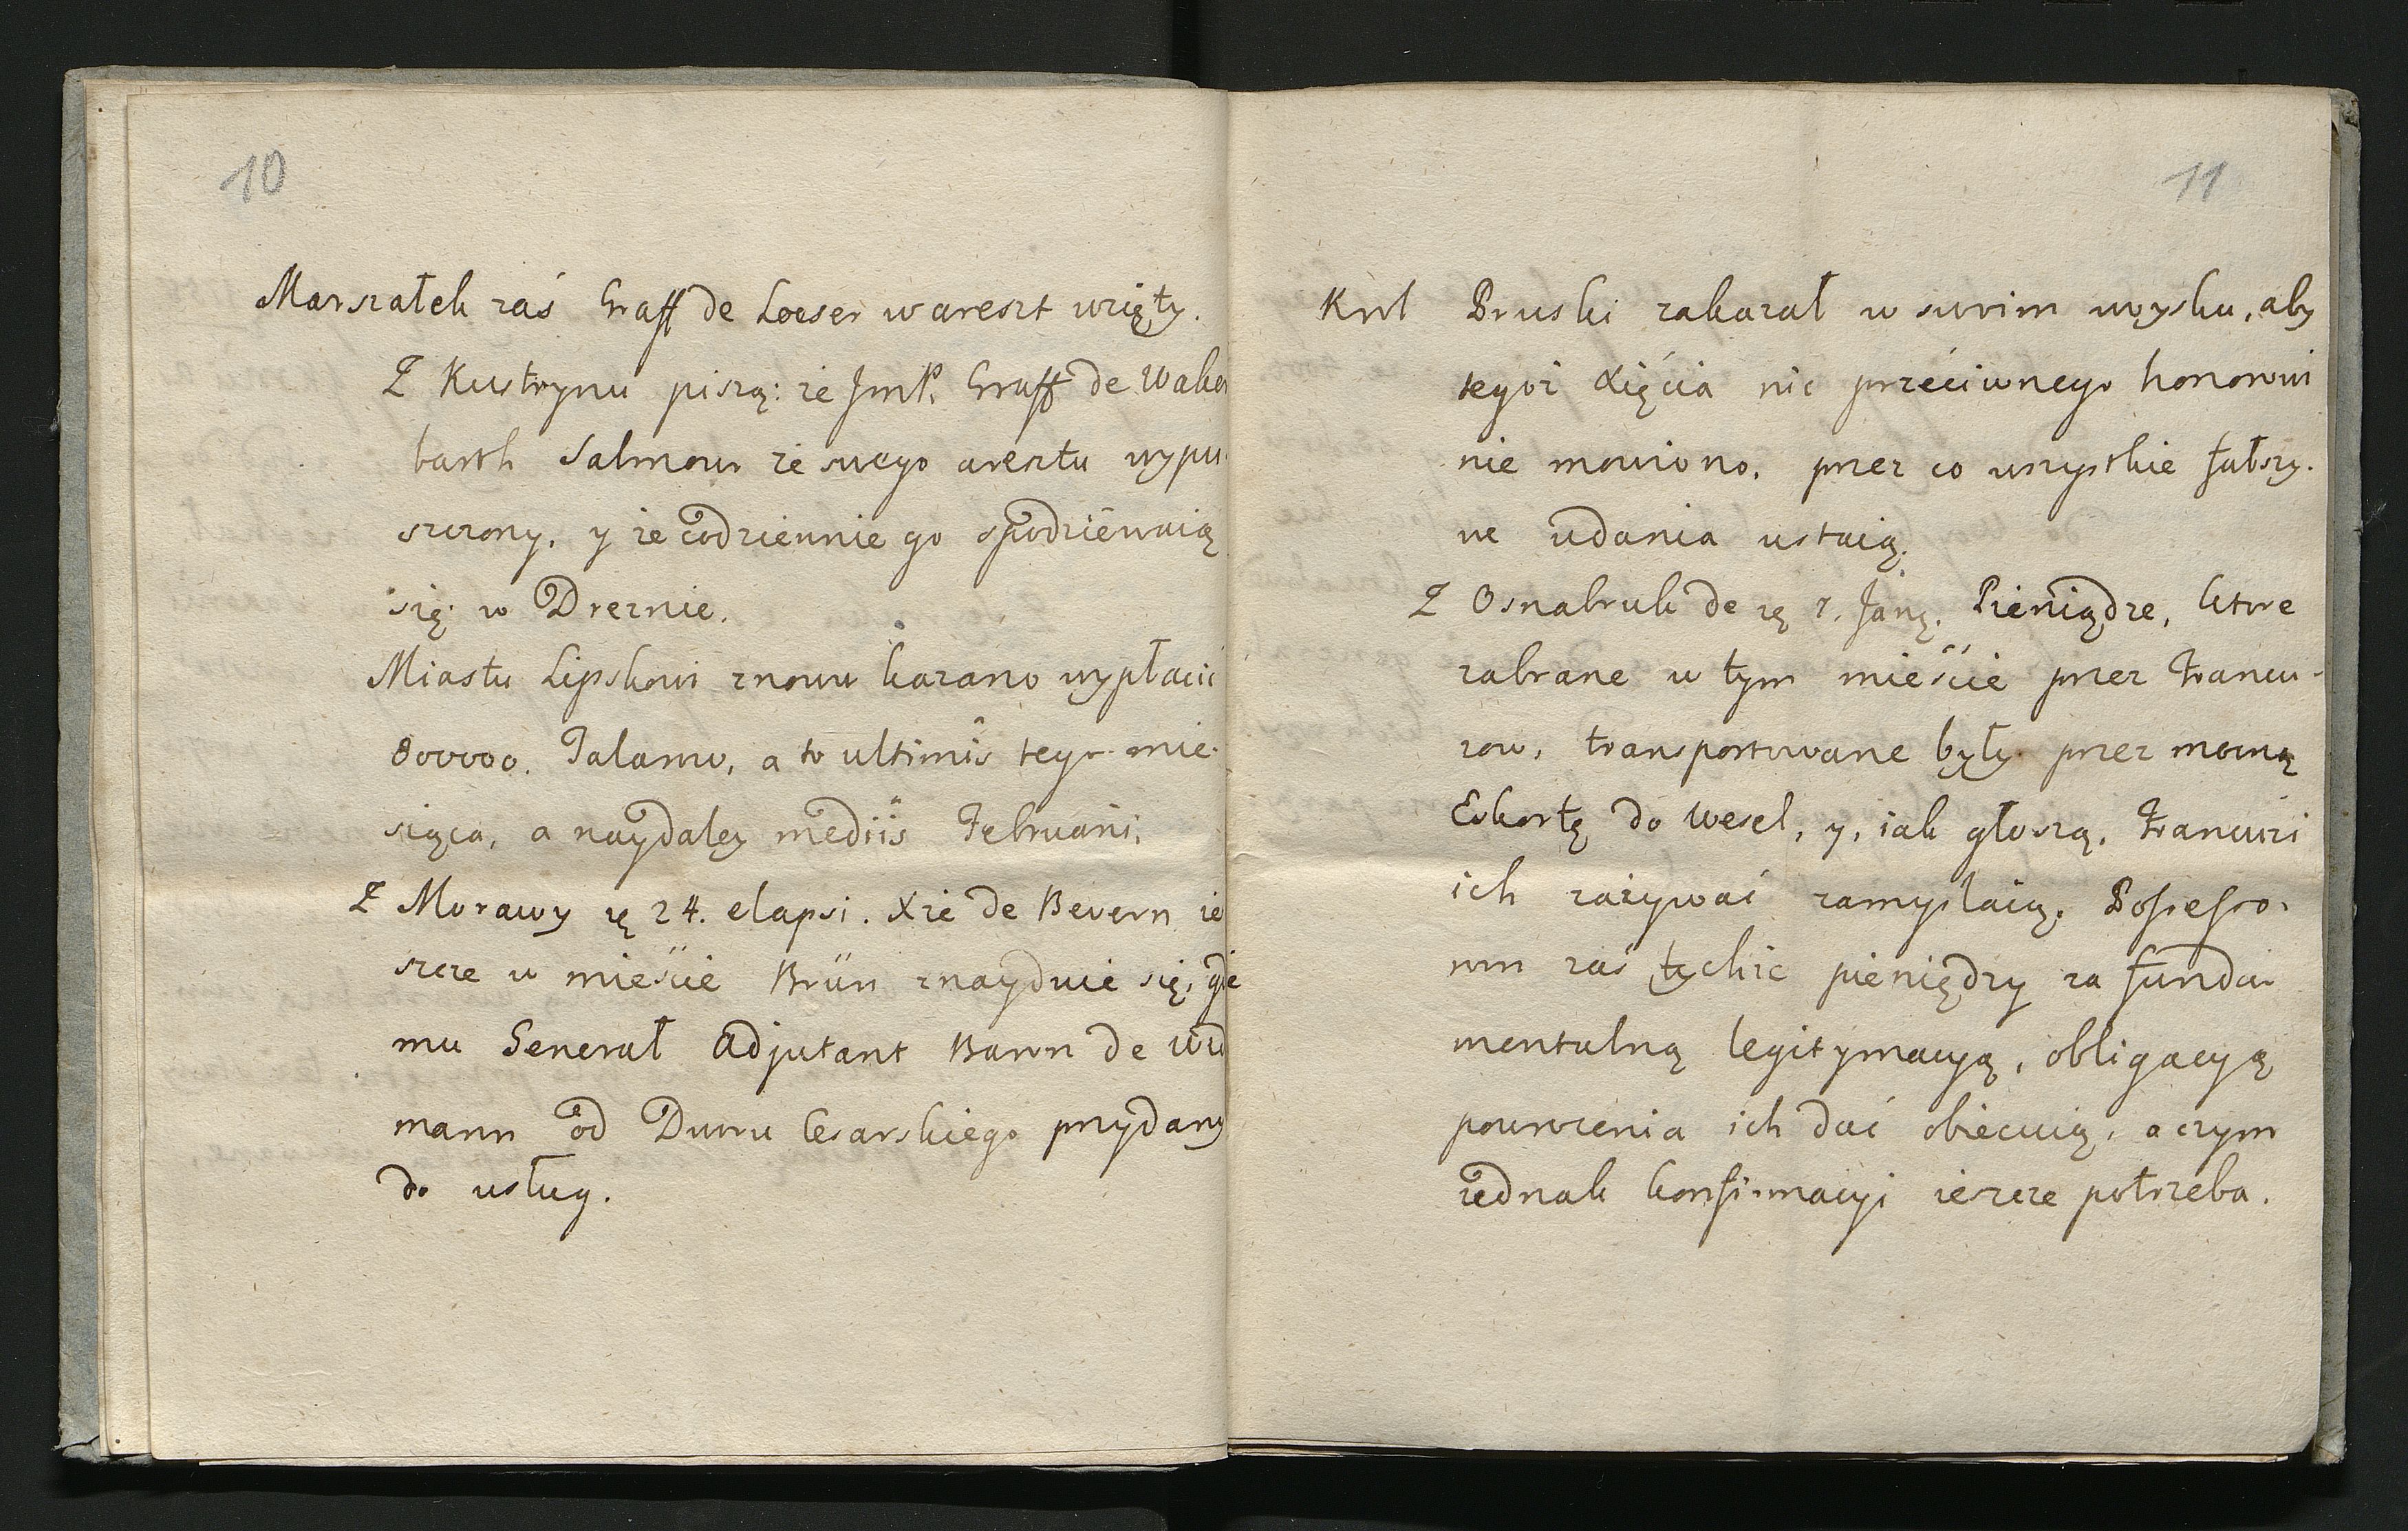 10
Marszałek zaś Graff de Loeser w areszt wzięty.
Z Kustrynu piszą: że JmP. Graff de Waker
barth Salmour ze swego aresztu wypu
szczony, y że codziennie go spodziewaią
się w Dreznie.
Miastu Lipskowi znowu kazano wypłacić
800000. Talarow, a to ultimis tego mie-
siąca, a naydaley mediis Februarii.
Z Morawy 24. elapsi. Xże de Bevern ie
szcze w mieście Brün znayduie się, gdie
mu Generał Adjutant Baron de Wid
mann od Dworu Cesarskiego przydany
do usług.
11
Krol Pruski zakazał w swoim woysku, aby
tegoż Xięcia nic przeciwnego honorowi
nie mowiono, przez co wszystkie fałszy-
we udania ustaią.
Z Osnabruk de 7. Jan. Pieniądze, ktore
zabrane w tym mieście przez Francu-
zow, transportowane były przez mocną
Eskortę do Wesel, y, iak głoszą, Francuzi
ich zażywać zamyślaią. Possesso-
rom zaś tychże pieniędzy za funda-
mentalną legitymacyą, obligacyą
powrocenia ich dać obiecuią, o czym
iednak konfirmacyi ieszcze potrzeba.